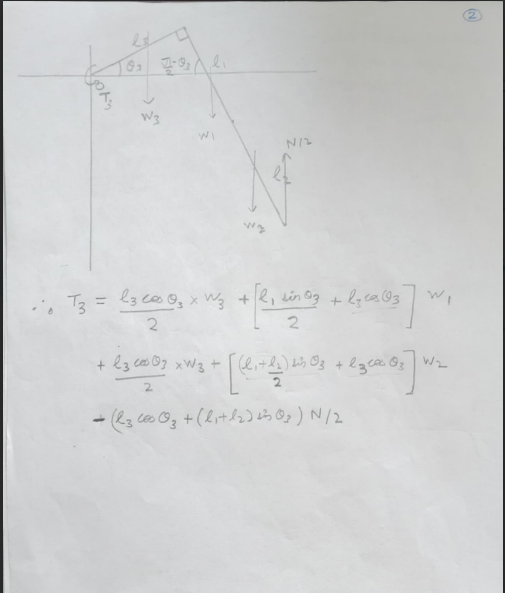 2
l3
θ3
π/2-θ3
l1
T3
W3
W1
N/2
l2
W2
∴ T3 = l3 cos θ3 / 2 × W3 + [ l1 sin θ3 / 2 + l3 cos θ3 ] W1
+ l3 cos θ3 / 2 × W3 + [ (l1+l2) sin θ3 / 2 + l3 cos θ3 ] W2
- (l3 cos θ3 + (l1+l2) sin θ3) N/2